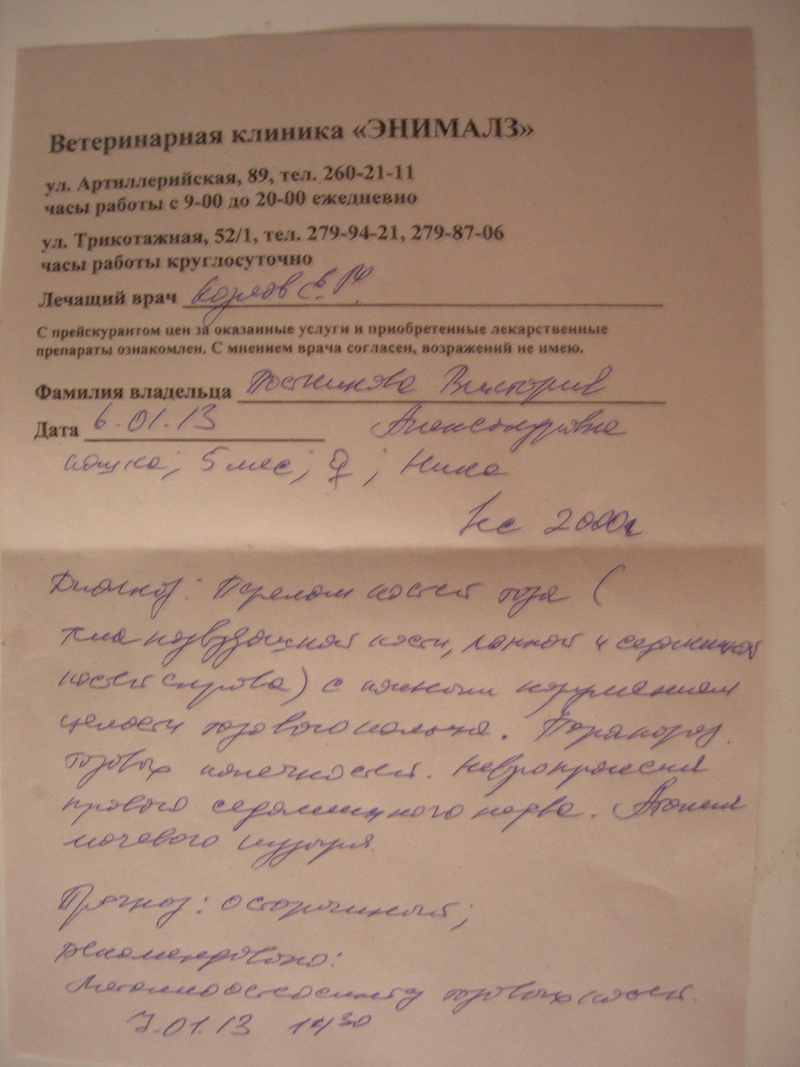 Ветеринарная клиника «ЭНИМАЛЗ»
ул. Артиллерийская, 89, тел. 260-21-11
часы работы с 9-00 до 20-00 ежедневно
ул. Трикотажная, 52/1, тел. 279-94-21, 279-87-06
часы работы круглосуточно
Лечащий врач Козлов
С прейскурантом цен за оказанные услуги и приобретенные лекарственные
препараты ознакомлен. С мнением врача согласен, возражений не имею.
Фамилия владельца Постникова Виктория
Дата 6.01.13 Александровна
кошка; 5 мес; ♀; Ника
2000
Диагноз: Перелом костей таза (
тела подвздошной кости, лонной и седалищной
костей справа) с полным нарушением
целости тазового кольца. Парапарез
тазовых конечностей. Невропраксия
правого седалищного нерва. Атония
мочевого пузыря.
Прогноз: осторожный;
рекомендовано:
Металлоостеосинтез тазовых костей.
7.01.13 14 30